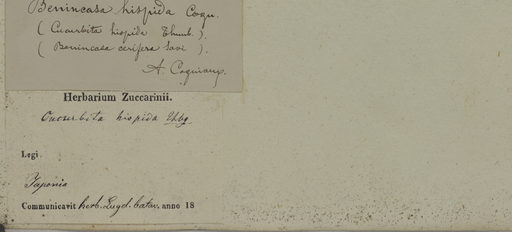 Benincasa hispida Cogn.
(Cucurbita hispida Thunb.).
(Benincasa cerifera Savi).
A. Cogniaux.
Herbarium Zuccarinii.
Cucurbita hispida Thbg.
Legi
Japonia
Communicavit herb. Lugd. batav. anno 18